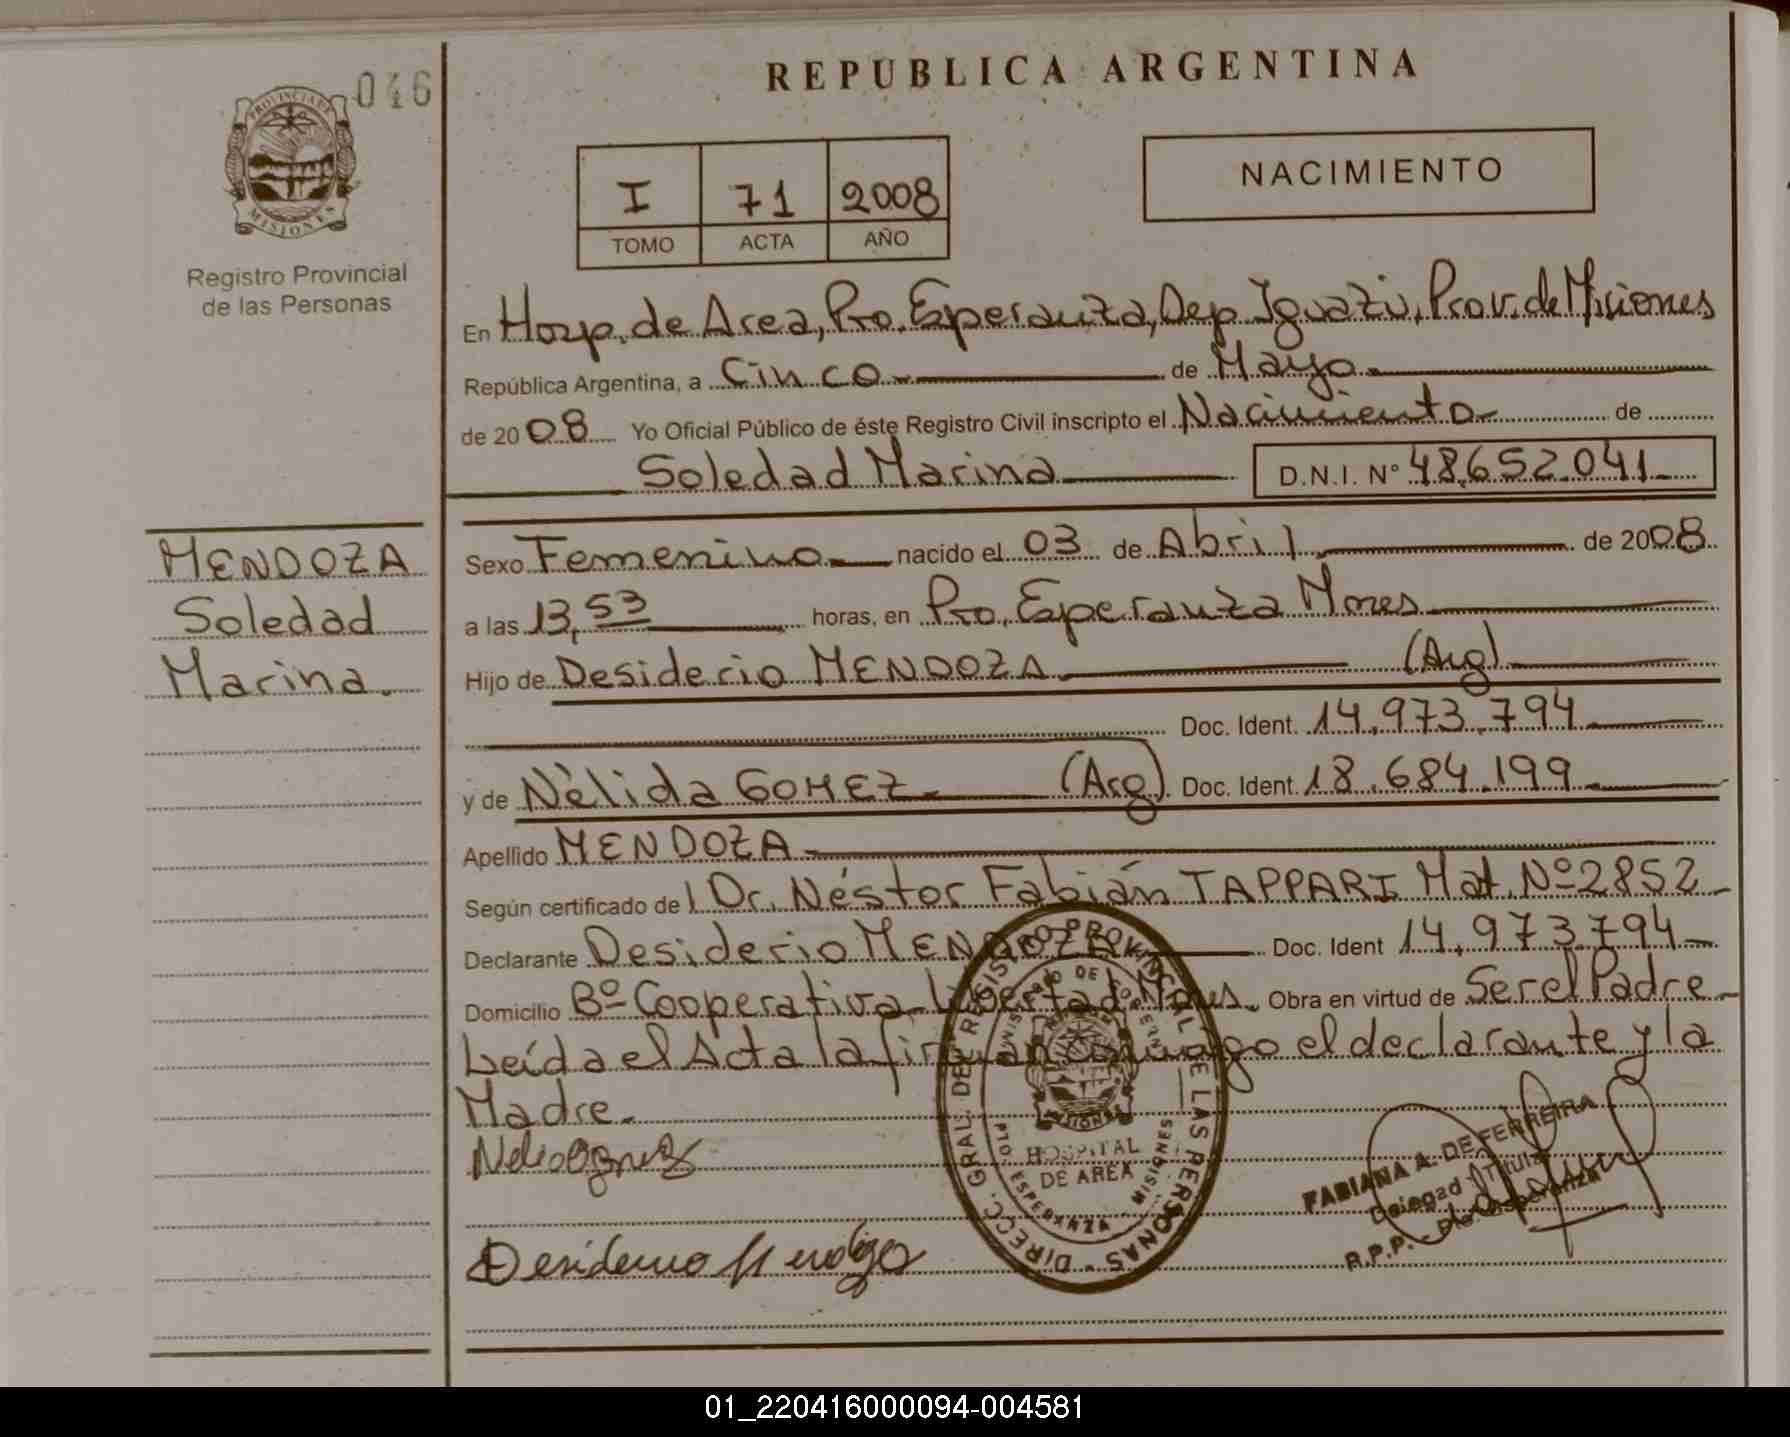 046
REPUBLICA ARGENTINA
PROVINCIA DE
MISIONES
Registro Provincial
de las Personas
I 71 2008
TOMO ACTA AÑO
NACIMIENTO
En Hosp. de Area, Pto. Esperanza, Dep Iguazú, Prov. de Misiones
República Argentina, a Cinco de Mayo
de 2008 Yo Oficial Público de éste Registro Civil inscripto el Nacimiento de
Soledad Marina D.N.I. Nº 48.652.041
MENDOZA
Soledad
Marina.
Sexo Femenino nacido el 03 de Abril de 2008
a las 13,53 horas, en Pto. Esperanza Mnes
Hijo de Desiderio MENDOZA (Arg)
Doc. Ident. 14.973.794
y de Nélida GOMEZ (Arg) Doc. Ident. 18.684.199
Apellido MENDOZA
Según certificado del Dr. Néstor Fabián TAPPARI Mat. Nº 2852
Declarante Desiderio MENDOZA Doc. Ident 14.973.794
Domicilio Bº Cooperativa Libertad Mnes. Obra en virtud de Ser el Padre
Leída el Acta la firman conmigo el declarante y la
Madre.
Desiderio Mendoza
DIRECC. GRAL. DEL REGISTRO PROVINCIAL DE LAS PERSONAS
MINISTERIO DE GOBIERNO
MISIONES
HOSPITAL
DE AREA
PTO. ESPERANZA - MISIONES
FABIANA A. DE FERREIRA
Delegad Titular
R.P.P. - Pto Esperanza
01_220416000094-004581